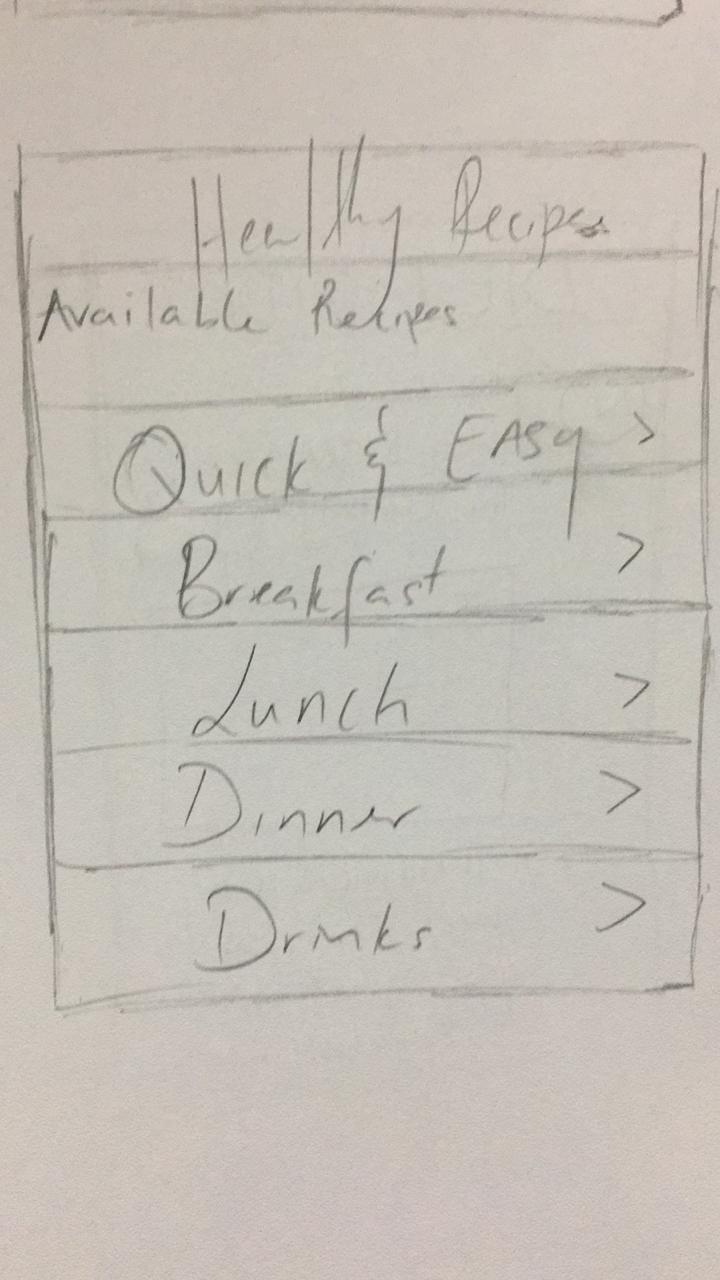 Healthy Recipes
Available Recipes
Quick & EASy >
Breakfast >
Lunch >
Dinner >
Drinks >